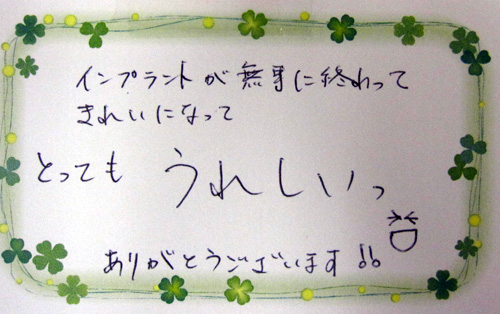 インプラントが無事に終わって
きれいになって
とっても うれしいっ
ありがとうございます!!